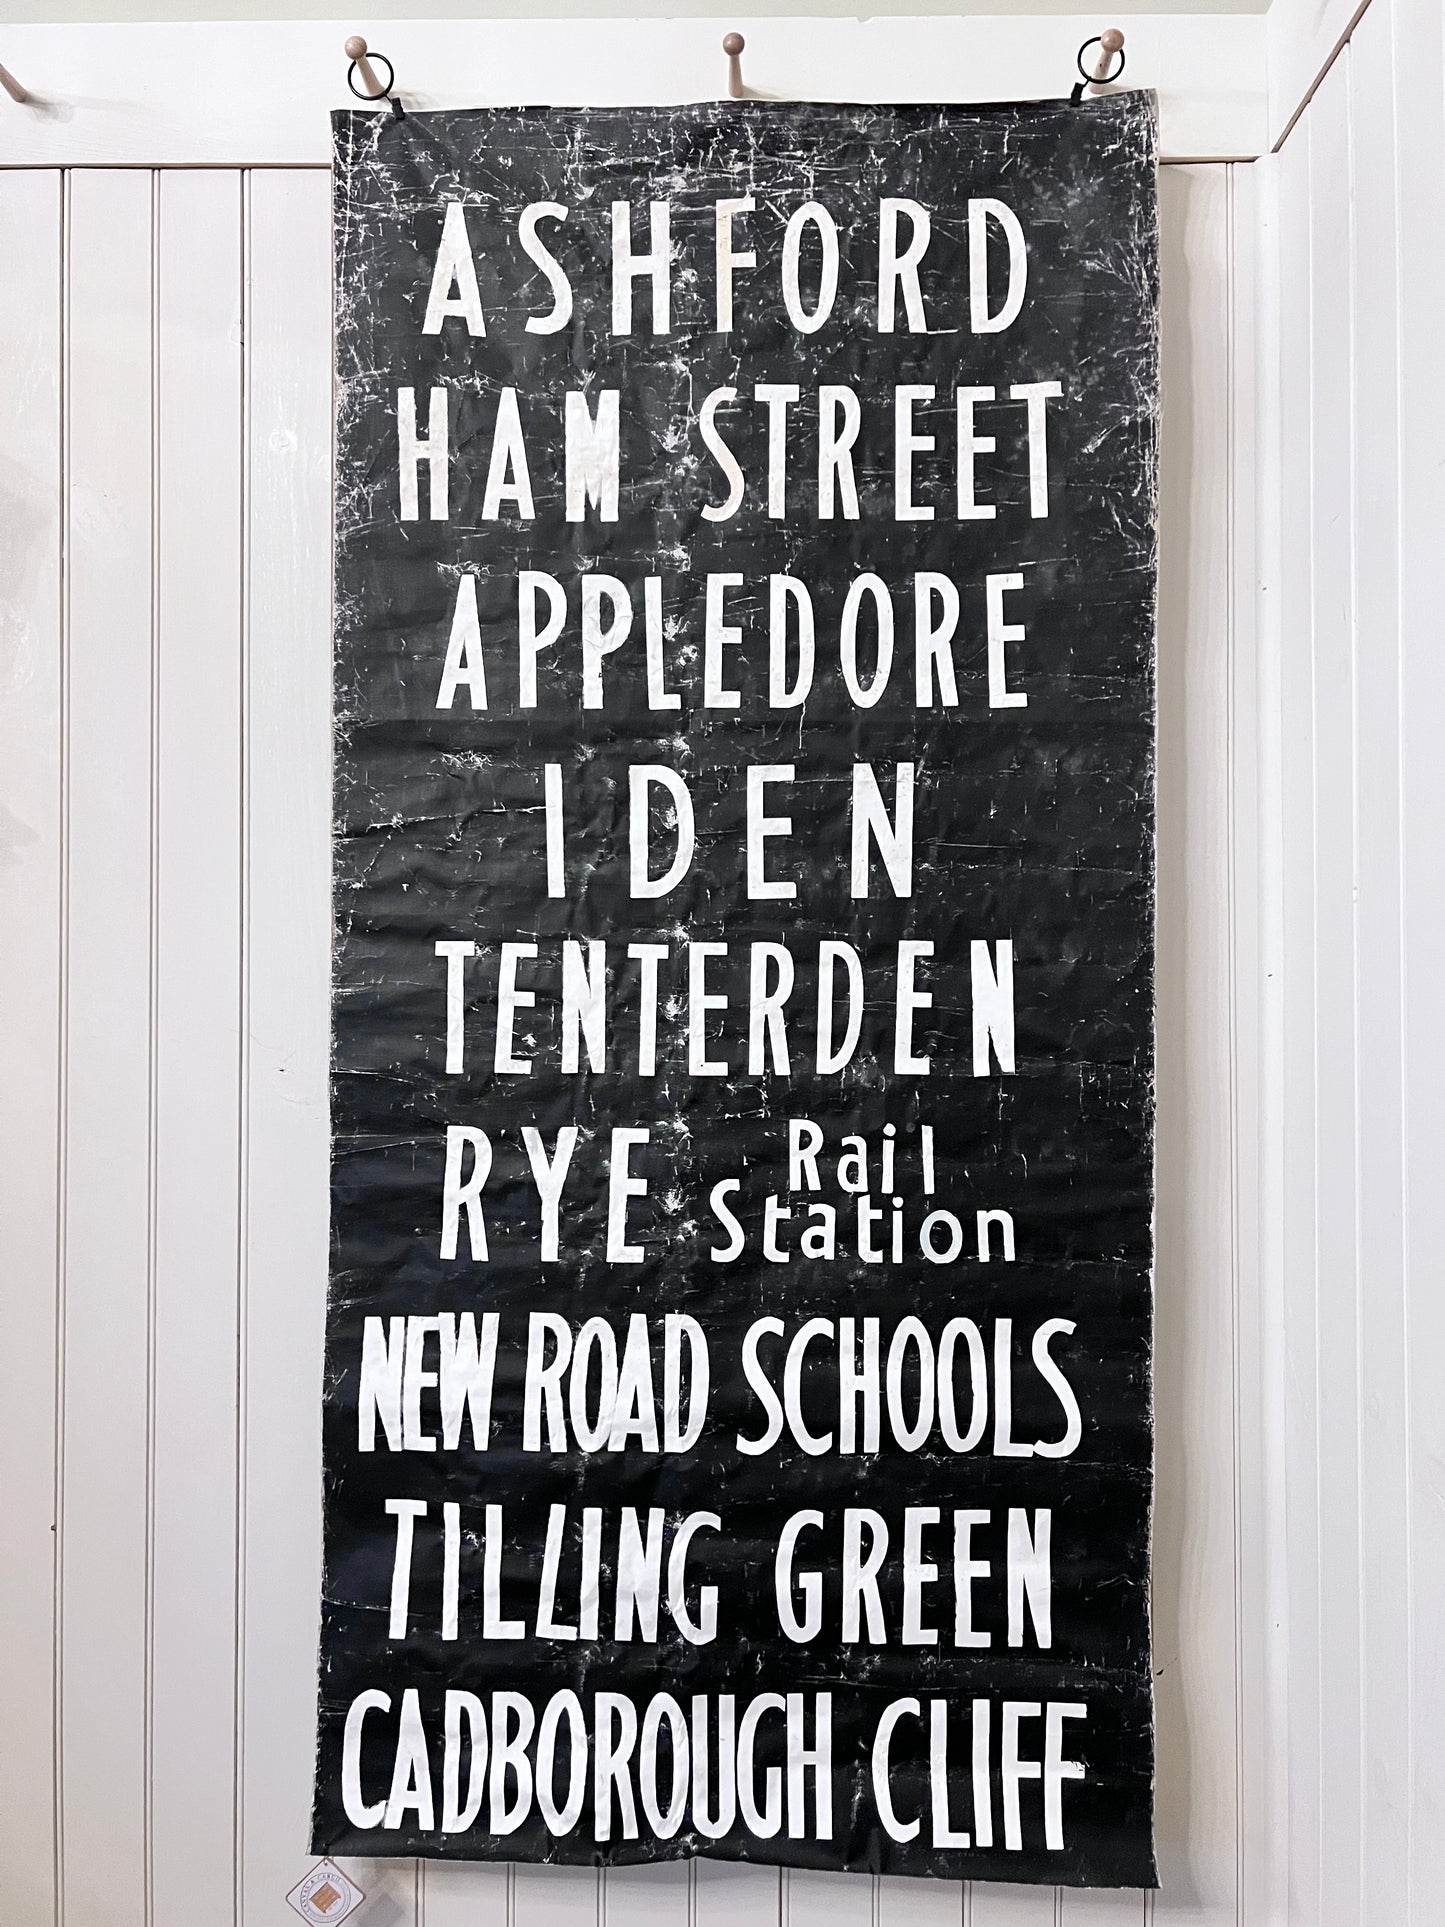 ASHFORD
HAM STREET
APPLEDORE
IDEN
TENTERDEN
RYE Rail Station
NEW ROAD SCHOOLS
TILLING GREEN
CADBOROUGH CLIFF